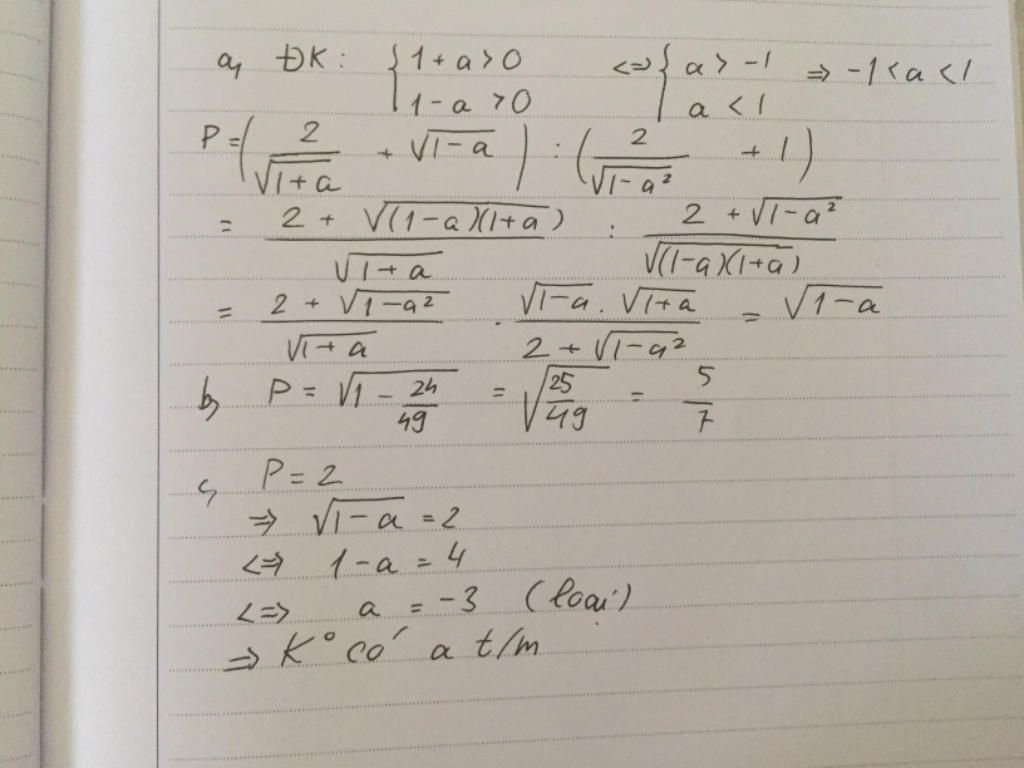 a, ĐK: { 1 + a > 0 <=> { a > -1 => -1 < a < 1
1 - a > 0 a < 1
P = (2/√(1+a) + √(1-a)) : (2/√(1-a²) + 1)
= (2 + √((1-a)(1+a)))/√(1+a) : (2 + √(1-a²))/√((1-a)(1+a))
= (2 + √(1-a²))/√(1+a) . (√(1-a) . √(1+a))/(2 + √(1-a²)) = √(1-a)
b, P = √(1 - 24/49) = √(25/49) = 5/7
c, P = 2
=> √(1-a) = 2
<=> 1-a = 4
<=> a = -3 (loại)
=> K° có a t/m